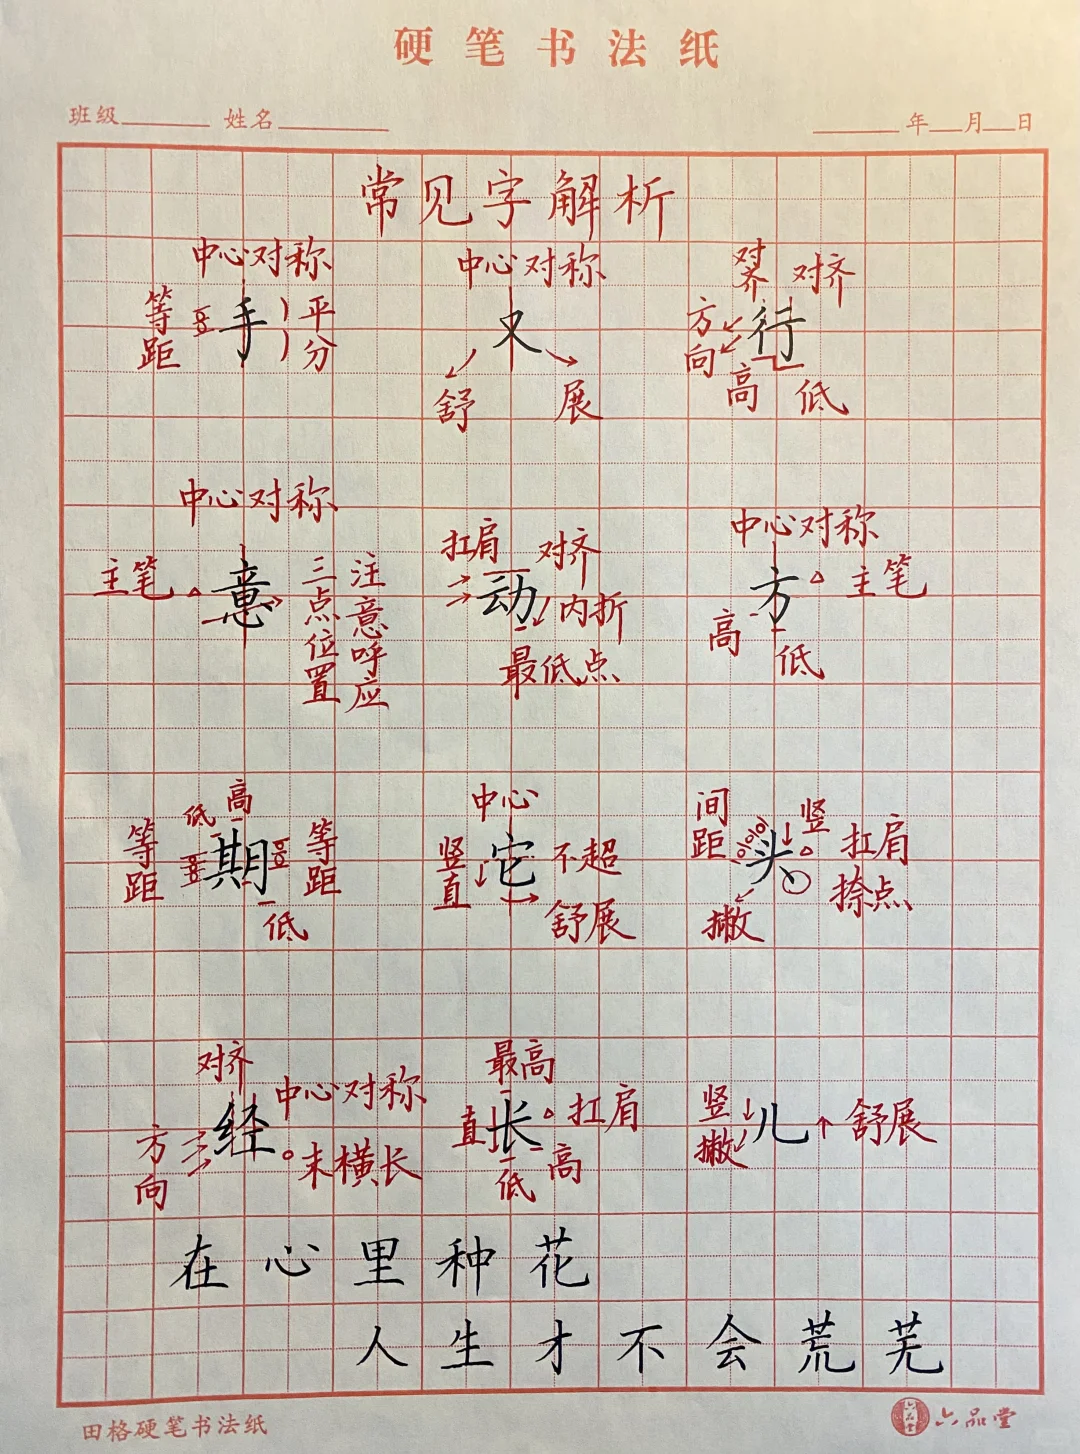 硬笔书法纸
班级 姓名 年 月 日
常见字解析
中心对称
等距 手 平分
中心对称
又
舒 展
对齐 对齐
方向 行
高 低
中心对称
主笔 意 三点位置 注意呼应
扛肩 对齐
动 内折
最低点
中心对称
方 主笔
高 低
低 高
等距 期 等距
低
中心
竖直 它 不超
舒展
间距 头 竖 扛肩
撇 捺点
对齐
中心对称
方向 经 末横长
最高
直 长 扛肩
低 高
竖撇 儿 舒展
在心里种花
人生才不会荒芜
田格硬笔书法纸
六品堂 六品堂